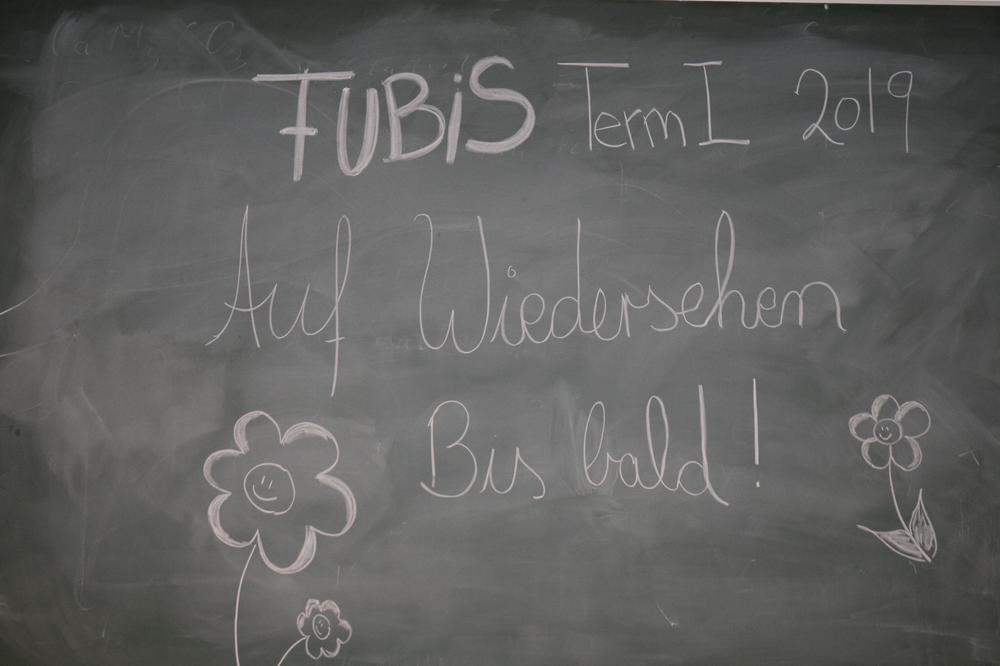 FUBiS Term I 2019
Auf Wiedersehen
Bis bald!